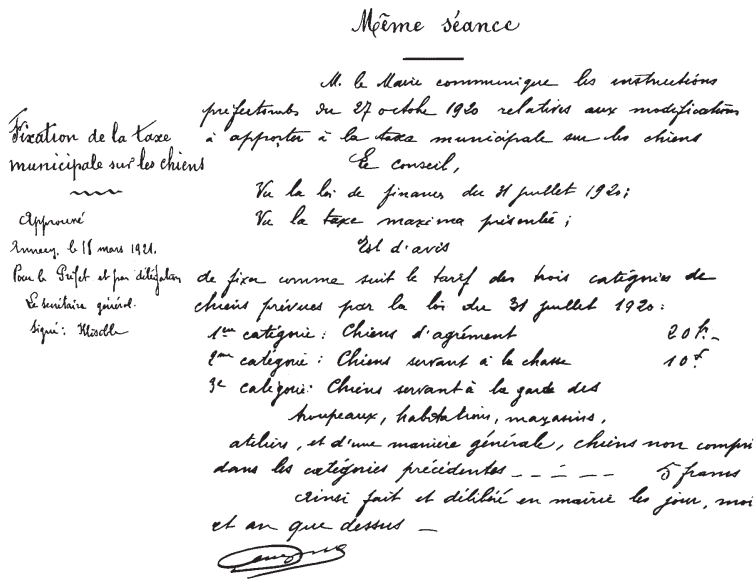 Même séance
Fixation de la taxe
municipale sur les chiens
Approuvé
Annecy, le 18 mars 1921.
Pour le Préfet et par délégation
Le secrétaire général.
Signé:
M. le Maire communique les instructions
préfectorales du 27 octobre 1920 relatives aux modifications
à apporter à la taxe municipale sur les chiens
Le conseil,
Vu la loi de finances du 31 juillet 1920;
Vu la taxe maxima présentée;
Est d'avis
de fixer comme suit le tarif des trois catégories de
chiens prévues par la loi du 31 juillet 1920:
1ère catégorie: Chiens d'agrément 20 fr. –
2me catégorie: Chiens servant à la chasse 10 f.
3e catégorie: Chiens servant à la garde des
troupeaux, habitations, magasins,
ateliers, et d'une manière générale, chiens non compris
dans les catégories précédentes _ _ _ _ _ 5 francs
Ainsi fait et délibéré en mairie les jour, mois
et an que dessus –